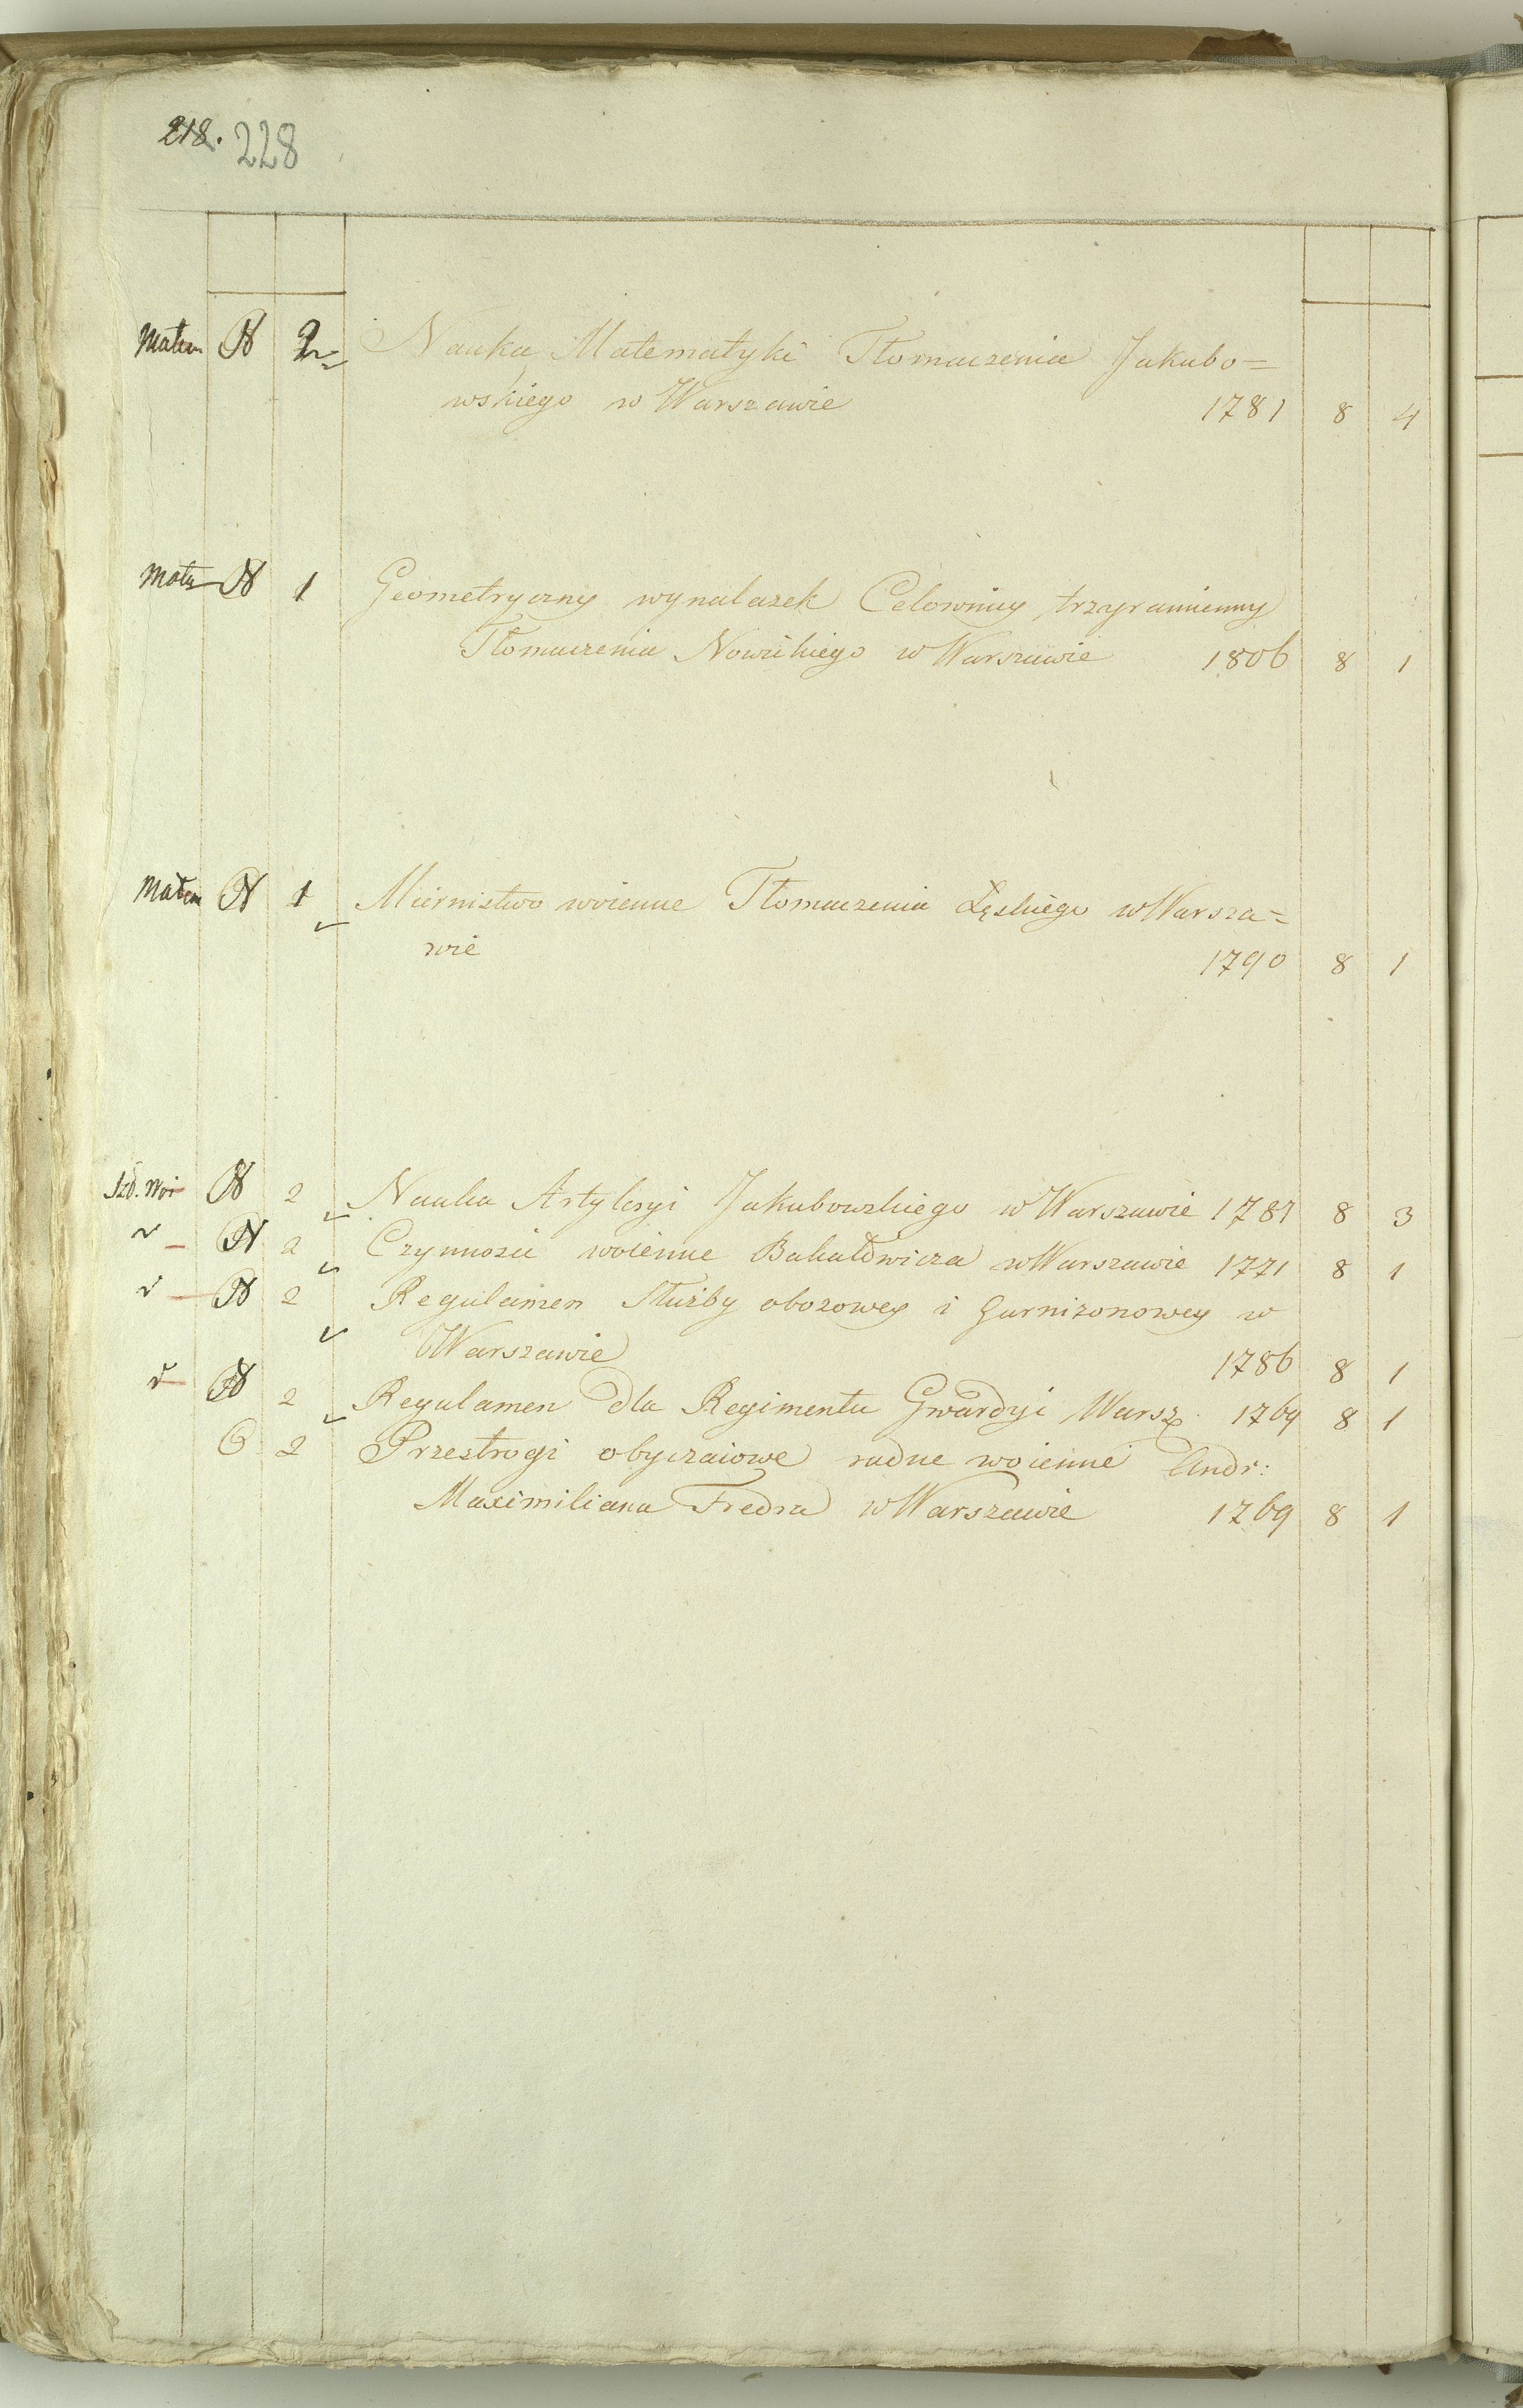 218. 228
Matem N 2 Nauka Matematyki Tłomaczenia Jakubo=
wskiego w Warszawie 1781 8 4
Mat N 1 Geometryczny wynalazek Celownicy trzyramienny
Tłomaczenia Nowickiego w Warszawie 1806 8 1
Matem N 1 Miernistwo woienne Tłomaczenia Łęskiego w Warsza=
wie 1790 8 1
N 2 Nauka Artyleryi Jakubowskiego w Warszawie 1781 8 3
N 2 Czynnosic woienne Bakałowicza w Warszawie 1771 8 1
N 2 Regulamen Służby obozowey i Garnizonowey w
Warszawie 1786 8 1
N 2 Regulamen dla Regimentu Gwardyi Warsz. 1769 8 1
2 Przestrogi obyczaiowe radne woienne Andr:
Maximiliana Fredra w Warszawie 1769 8 1